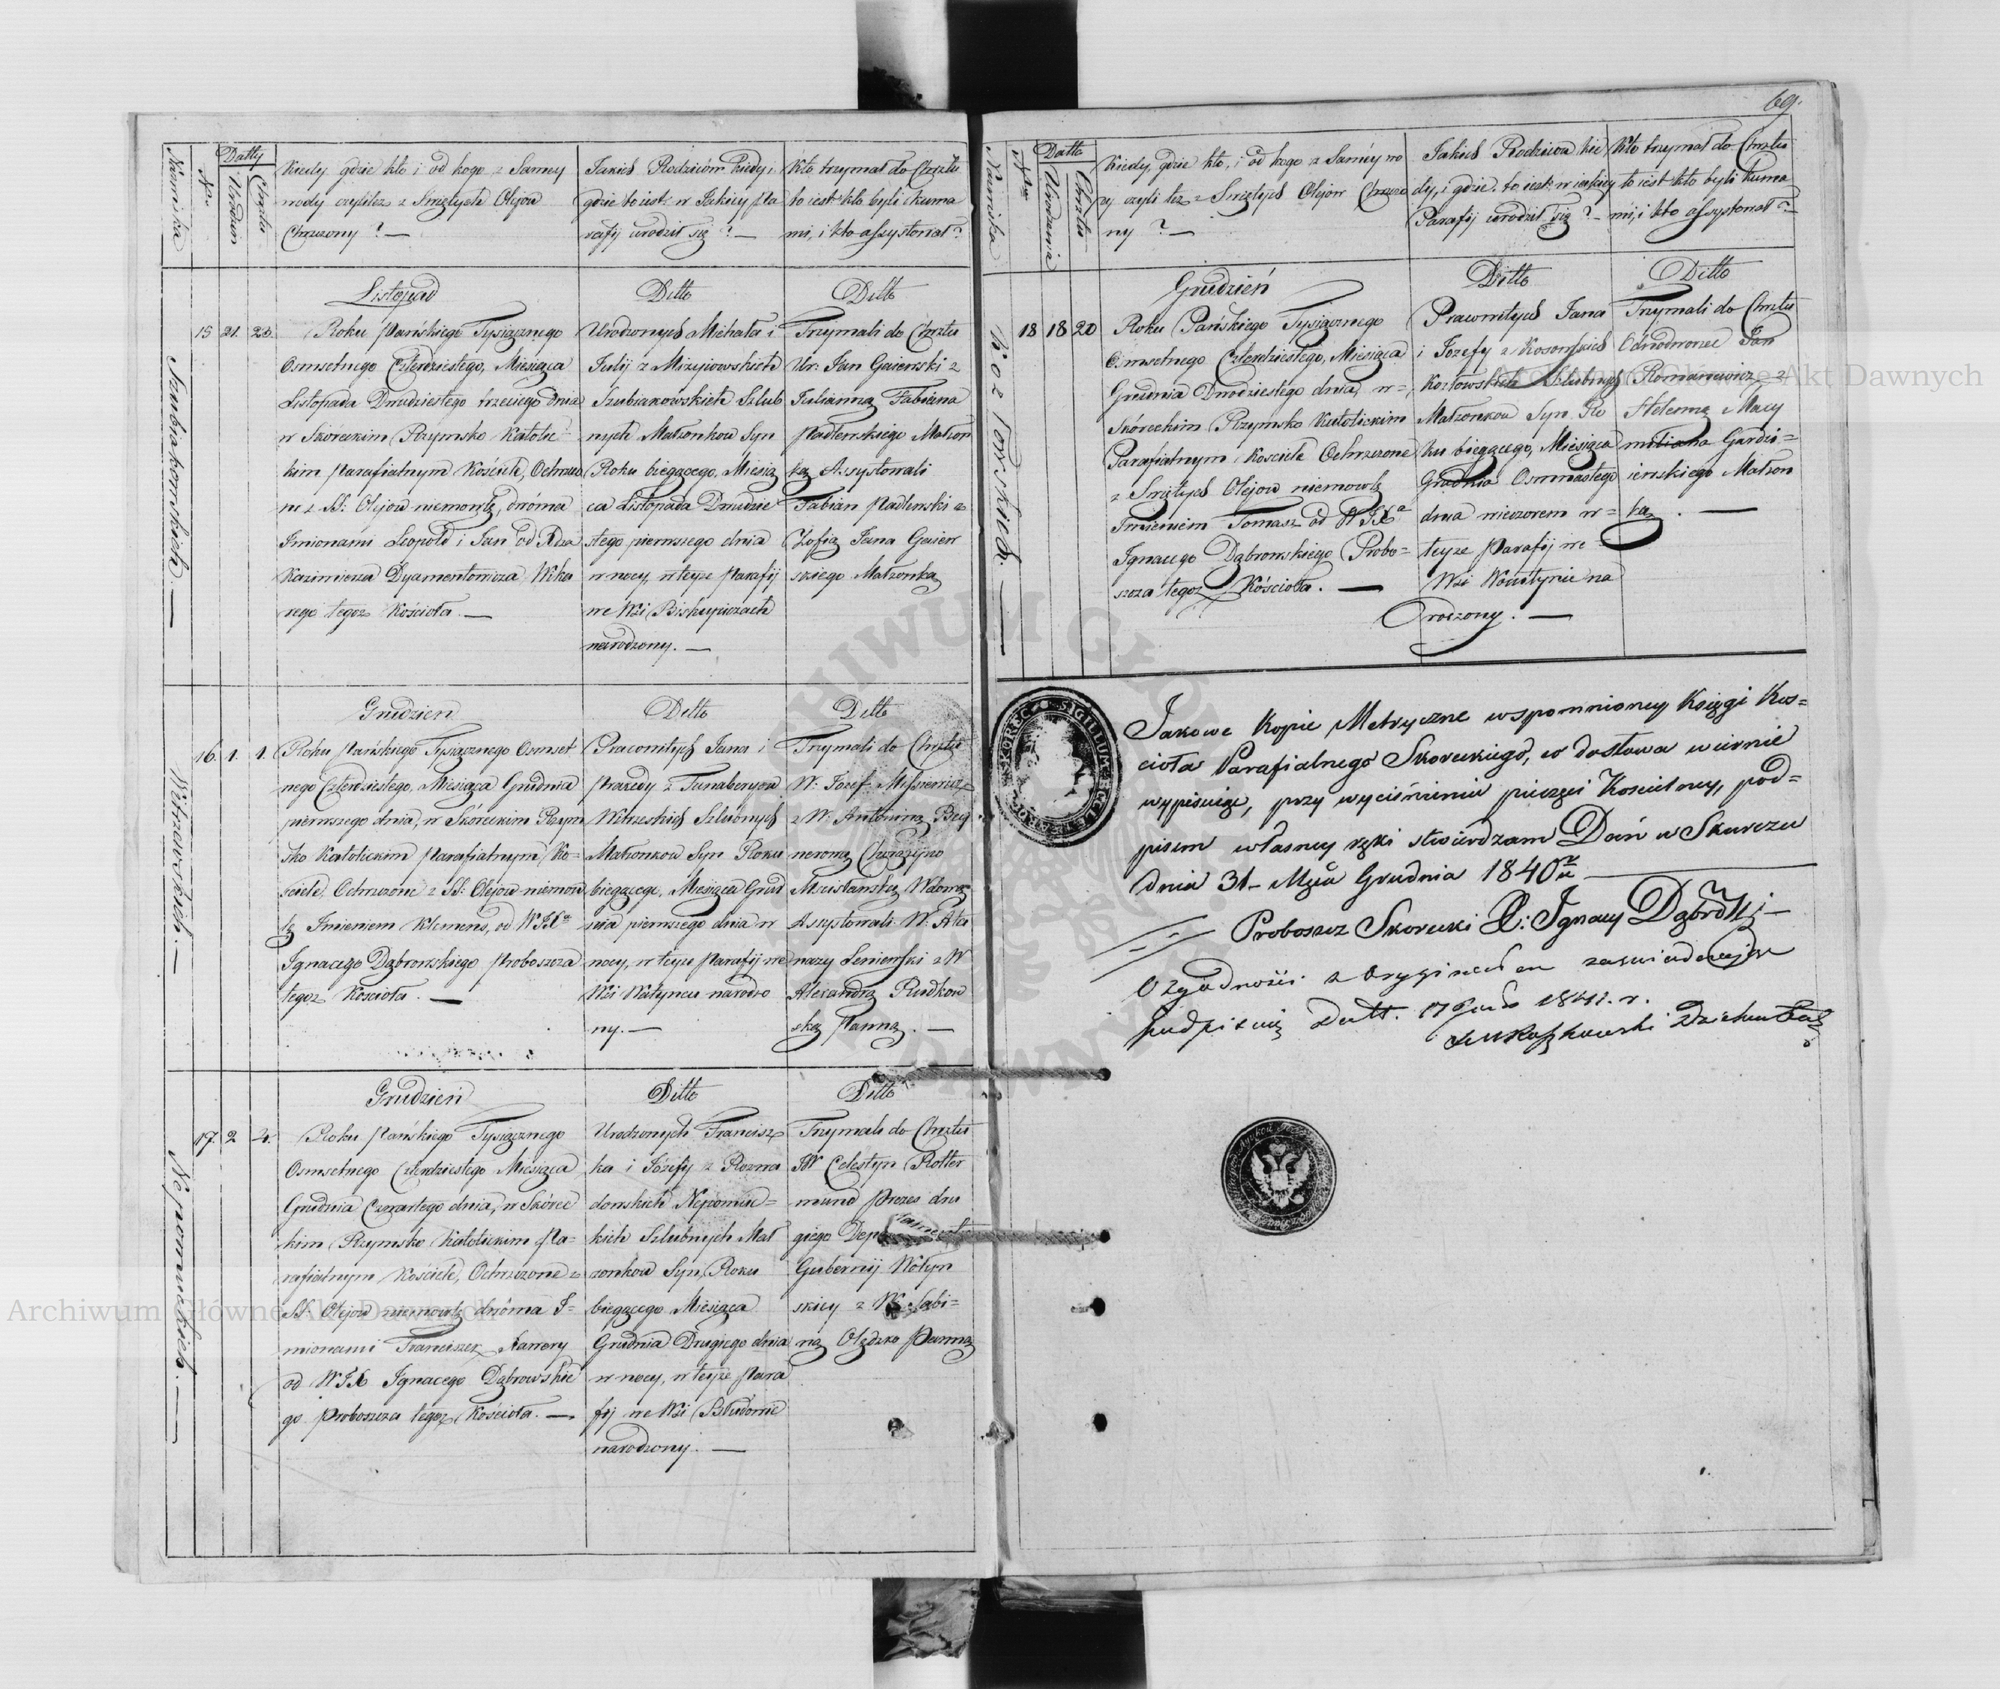 69.
Nazwiska
Nr.
Datty
Urodzin
Chrztu
Kiedy gdzie kto i od kogo z Samey
wody czyliteż z Świętych Olejów
Chrzczony ? —
Jakich Rodziców kiedy i
gdzie to iest w Jakiey Pa
rafij urodził się ? —
Kto trzymał do Chrztu
to iest kto byli kuma
mi, i kto assystował ?
Szubiakowskich —
15 21. 23.
Listopad
Roku Pańskiego Tysiącznego
Osmsetnego Czterdziestego, Miesiąca
Listopada Dwudziestego trzeciego dnia
w Skóreckim Rzymsko Katolic=
kim Parafialnym Kościele, Ochrzczo
no z SS: Olejów niemowlę, dwóma
Jmionami Leopold i Jan od Xdza
Kazimierza Dyamentowicza Wika
rego tegoż Kościoła. —
Ditto
Urodzonych Michała i
Julij z
Szubiakowskich Szlub
nych Małżonków Syn
Roku bieżącego, Miesią
ca Listopada Dwudzie
stego pierwszego dnia
w nocy, w teyże Parafij
we Wsi Biskupiczach
narodzony. —
Ditto
Trzymali do Chrztu
Ur: Jan Gaiewski z
Julianną Fabiana
Padlewskiego Małżon
ką Assystowali
Fabian Padlewski z
Zofią Jana Gaiew
skiego Małżonką
Witrzewskich. —
16. 1. 1.
Grudzień
Roku Pańskiego Tysiącznego Osmset
nego Czterdziestego, Miesiąca Grudnia
pierwszego dnia, w Skóreckim Rzym
sko Katolickim Parafialnym Ko=
ściele, Ochrzczono z SS: Olejów niemow
lę Jmieniem Klemens, od WJXa
Ignacego Dąbrowskiego Proboszcza
tegoż Kościoła. —
Ditto
Pracowitych Jana i
Praxedy z
Szlubnych
Małżonków Syn Roku
bieżącego, Miesiąca Grud
nia pierwszego dnia w
nocy, w teyże Parafij we
Wsi Watyńcu narodzo
ny. —
Ditto
Trzymali do Chrztu
W: Józef
z W: Antoniną
Wdową
Assystowali W: Ata
nazy Leniewski z W
Alexandrą Rudkow
ską Panną. —
Nepomuckich. —
17. 2 4.
Grudzień
Roku Pańskiego Tysiącznego
Osmsetnego Czterdziestego Miesiąca
Grudnia Czwartego dnia, w Skórec
kim Rzymsko Katolickim Pa=
rafialnym Kościele, Ochrzczono z
SS. Olejów niemowlę dwóma J=
mionami Franciszek Xawery
od WJX Ignacego Dąbrowskie
go Proboszcza tegoż Kościoła. —
Ditto
Urodzonych Francisz
ka i Józefij z Rozwa
dowskich Nepomuc=
kich Szlubnych Mał
żonków Syn, Roku
bieżącego Miesiąca
Grudnia Drugiego dnia
w nocy, w teyże Para
fij we Wsi Bludowie
narodzony. —
Ditto
Trzymali do Chrztu
JW Celestyn Rotter
mund Prezes dru
giego
Gubernij Wołyn
skiey z W: Sabi=
ną Olędzko Panną
Nazwiska
Datta
Urodzenia
Chrztu
Kiedy, gdzie kto, i od kogo z Saméy wo
dy czyli też z Świętych Olejów Chrzczo
ny ? —
Jakich Rodziców kie
dy, i gdzie, to iest w iakiey
Parafij urodził się ? —
Kto trzymał do Chrztu
to iest kto byli kuma
mi, i kto assystował ? —
Kozłowskich. —
18 18 20
Grudzień
Roku Pańskiego Tysiącznego
Osmsetnego Czterdziestego, Miesiąca
Grudnia Dwódziestego dnia, w=
Skóreckim Rzymsko Katolickim
Parafialnym Kościele Ochrzczono
z Świętych Olejów niemowlę
Jmieniem Tomasz od WJXa
Ignacego Dąbrowskiego Probo=
szcza tegoż Kościoła. —
Ditto
Pracowitych Jana
i Józefy z Kosowskich
Kozłowskich Szlubnych
Małżonków Syn, Ro
ku bieżącego, Miesiąca
Grudnia Osmnastego
dnia wieczorem w=
teyże Parafij we=
Wsi Woiutynie na
rodzony. —
Ditto
Trzymali do Chrztu
Odnodworzec Jan
Romanowicz z
Heleną Maxy
miliana Gardzi=
ienskiego Małżon
ką. —
Jakowe Kopie Metryczne wspomnioney Księgi Koś=
cioła Parafialnego Skoreckiego, co dosłowa wiernie
wypisuiąc, przy wyciśnieniu pieczęci Kościelney, pod=
pisem własney ręki stwierdzam Dań w Skurczu
dnia 31 Mżca Grudnia 1840 r. —
Proboszcz Skorecki X: Ignacy Dąbrowski —
O zgodności z Oryginałem zaswiadczając
podpisuię Datt. 17 1841. r.
Dziekan
SIGILLUM
Archiwum Główne Akt Dawnych
Archiwum Główne Akt Dawnych
ARCHIWUM GŁÓWNE AKT DAWNYCH